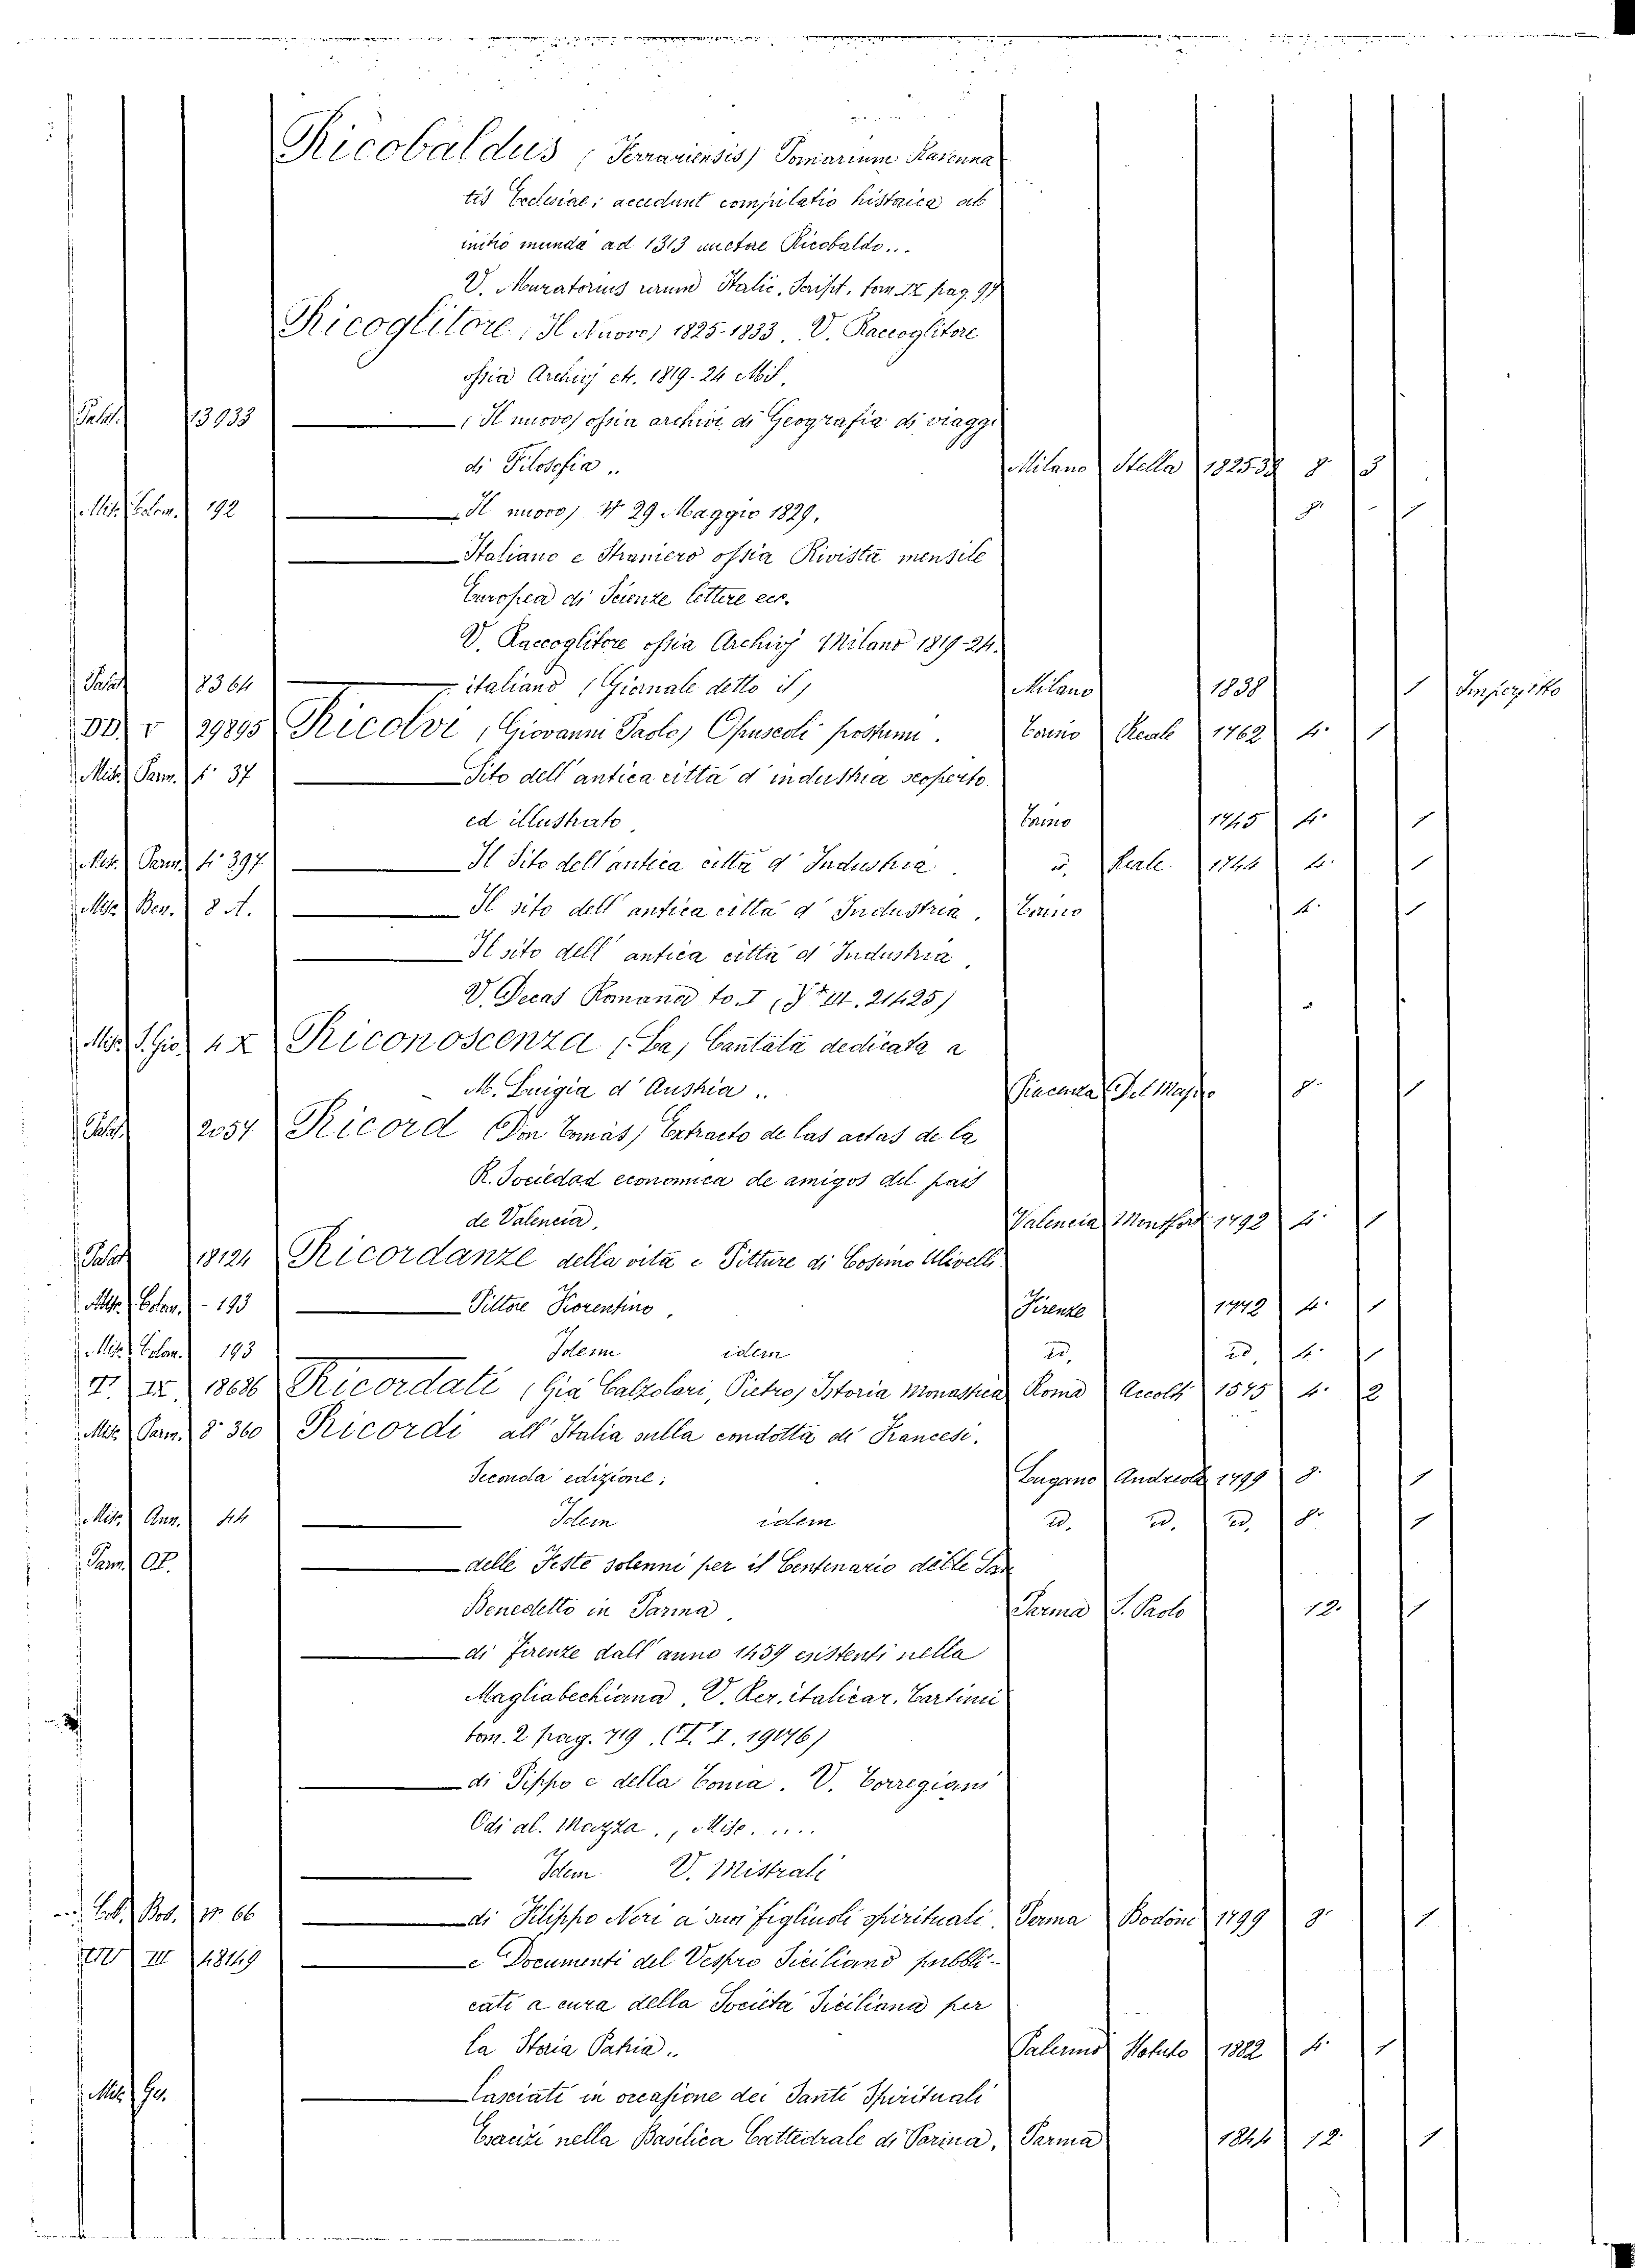 Ricobaldus (Ferrariensis) Pomarium Ravenna
tis Ecclesiae; accedunt compilatio historica ab
initio mundi ad 1313 auctore Ricobaldo...
V. Muratorius rerum Italic. Script. tom IX pag. 97
Ricoglitore (Il Nuovo) 1825-1833. V. Raccoglitore
ossia Archivj etc. 1819-24 Mil.
Palat. 13933 (Il nuovo) ossia archivi di Geografia di viaggi
di Filosofia .. Milano Stella 1825-33 8 3
Misc. Colom. 192 (Il nuovo) N 29 Maggio 1829. 8. 1
Italiano e Straniero ossia Rivista mensile
Europea di Scienze lettere ecc.
V. Raccoglitore ossia Archivj Milano 1819-24.
Palat 8364 italiano (Giornale detto il) Milano 1838 1 Imperfetto
DD. V 29895 Ricolvi (Giovanni Paolo) Opuscoli postumi. Torino Reale 1762 4. 1
Misc. Parm. 4. 37 Sito dell' antica città d' industria scoperto
ed illustrato. Torino 1745 4. 1
Misc. Parm. 4. 397 Il Sito dell' antica città d' Industria. id. Reale 1744 4. 1
Misc. Ber. 8 A. Il sito dell' antica città d' Industria. Torino 4. 1
Il sito dell' antica città d' Industria.
V. Decas Romana to. I 21425)
Misc. S. Gio. 4 X Riconoscenza (La) Cantata dedicata a
M. Luigia d' Austria .. Piacenza Del Majno 8. 1
Palat. 2054 Ricord (Don Tomás) Extracto de las actas de la
R. Sociedad economica de amigos del pais
de Valencia. Valencia Montfort 1792 4. 1
Palat 18124 Ricordanze della vita e Pitture di Cosimo Ulivelli
Misc. Colom. 193 Pittore Fiorentino. Firenze 1772 4. 1
Misc. Colom. 193 Idem idem id. id. 4. 1
T. IX 18686 Ricordati (Già Calzolari, Pietro) Istoria Monastica Roma Accolti 1575 4. 2
Misc Parm. 8. 360 Ricordi all' Italia sulla condotta de' Francesi.
Seconda edizione; Lugano Andreola 1799 8. 1
Misc. Ann. 44 Idem idem id. id. id. 8. 1
Parm. OP. delle Feste solenni per il Centenario delle San
Benedetto in Parma. Parma S. Paolo 12. 1
di Firenze dall' anno 1459 esistenti nella
Magliabechiana. V. Rer. italicar. Tartini
tom. 2 pag. 719. (T. I. 19076)
di Pippo e della Tonia. V. Corregiani
Odi al. Mazza., Misc. ....
Idem V. Mistrali
Bod. N. 66 di Filippo Neri a' suoi figliuoli spirituali. Parma Bodoni 1799 8. 1
III 48149 e Documenti del Vespro Siciliano pubbli-
cati a cura della Società Siciliana per
la Storia Patria.. Palermo Statuto 1882 4. 1
Misc. Ger. Lasciati in occasione dei Santi Spirituali
Esercizi nella Basilica Cattedrale di Parma. Parma 1844 12. 1